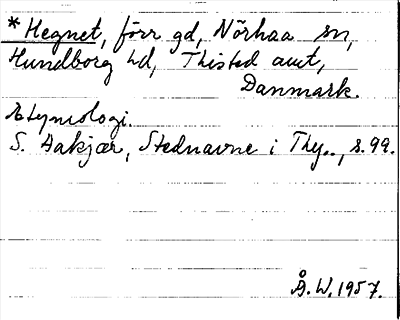 *Hegnet, förr gd, Nörhaa sn,
Hundborg hd, Thisted amt,
Danmark.
Etymologi.
S. Aakjær, Stednavne i Thy.., s.99.
Å.W.1957.